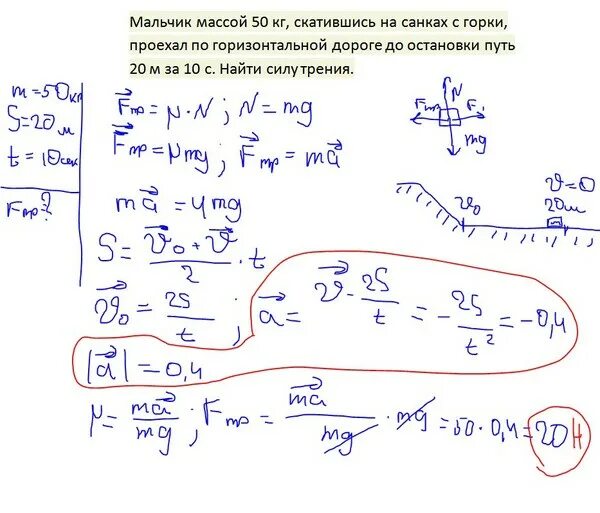 Мальчик массой 50 кг, скатившись на санках с горки,
проехал по горизонтальной дороге до остановки путь
20 м за 10 с. Найти силу трения.
m = 50 кг
S = 20 м
t = 10 сек
Fтр ?
F⃗тр = μ · N ; N = mg
F⃗тр = μmg ; F⃗тр = ma⃗
ma⃗ = μmg
S = (v⃗₀ + v⃗)/2 · t
v⃗₀ = 2S/t ; a⃗ = (v⃗ - 2S/t)/t = - 2S/t² = -0,4
|a⃗| = 0,4
μ = ma⃗/mg ; Fтр = ma⃗/mg · mg = 50 · 0,4 = 20 Н
N
Fтр
mg
v₀
v = 0
20м